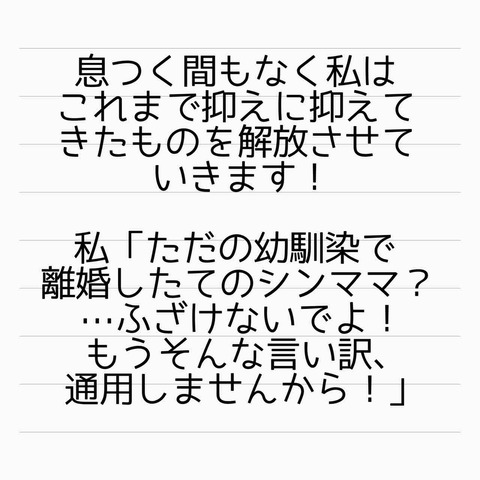 息つく間もなく私は
これまで抑えに抑えて
きたものを解放させて
いきます！
私「ただの幼馴染で
離婚したてのシンママ？
…ふざけないでよ！
もうそんな言い訳、
通用しませんから！」